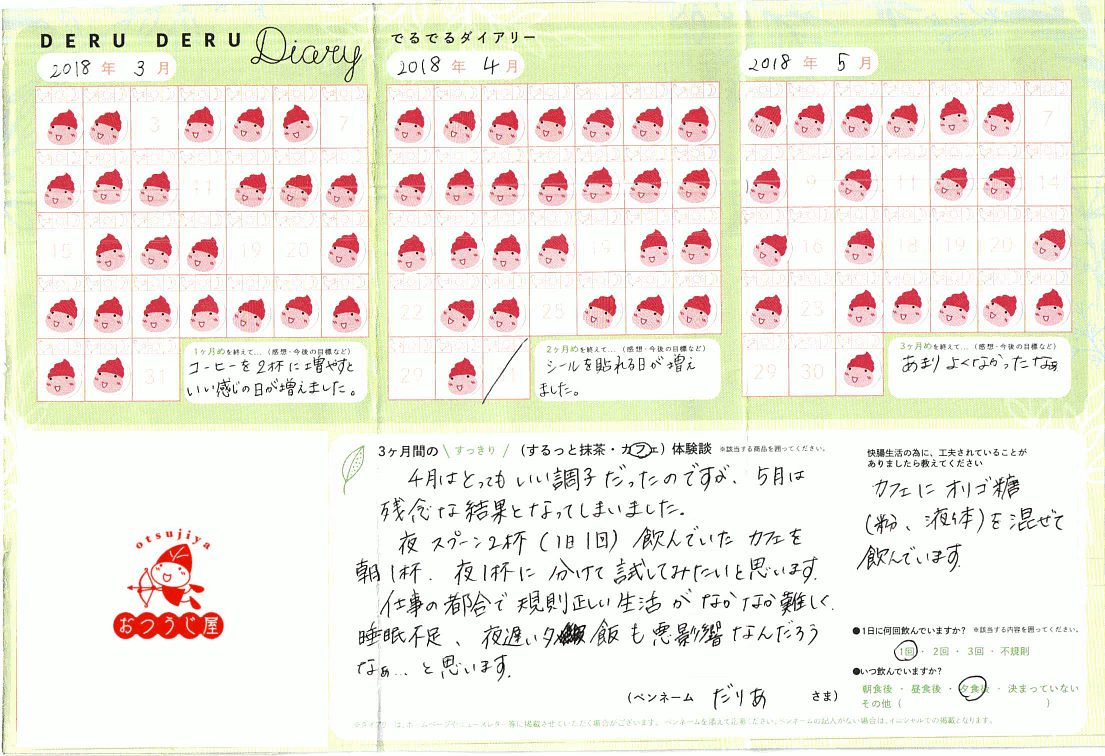 DERU DERU Diary でるでるダイアリー
2018年 3月
2018年 4月
2018年 5月
3
7
7
11
9
11
14
15
19
20
19
16
18
19
20
22
25
23
31
29
29
30
1ヶ月めを終えて…（感想・今後の目標など）
コーヒーを2杯に増やすと
いい感じの日が増えました。
2ヶ月めを終えて…（感想・今後の目標など）
シールを貼れる日が増え
ました。
3ヶ月めを終えて…（感想・今後の目標など）
あまりよくなかったなぁ
3ヶ月間の \ すっきり / （するっと抹茶・カフェ）体験談 ※該当する商品を囲ってください。
4月はとってもいい調子だったのですが、5月は
残念な結果となってしまいました。
夜スプーン2杯（1日1回）飲んでいたカフェを
朝1杯、夜1杯に分けて試してみたいと思います。
仕事の都合で規則正しい生活がなかなか難しく
睡眠不足、夜遅い夕飯も悪影響なんだろう
なぁ…と思います。
（ペンネーム だりあ さま）
快腸生活の為に、工夫されていることが
ありましたら教えてください
カフェにオリゴ糖
（粉、液体）を混ぜて
飲んでいます。
●1日に何回飲んでいますか？ ※該当する内容を囲ってください。
1回・2回・3回・不規則
●いつ飲んでいますか？
朝食後・昼食後・夕食後・決まっていない
その他（ ）
otsujiya
おつうじ屋